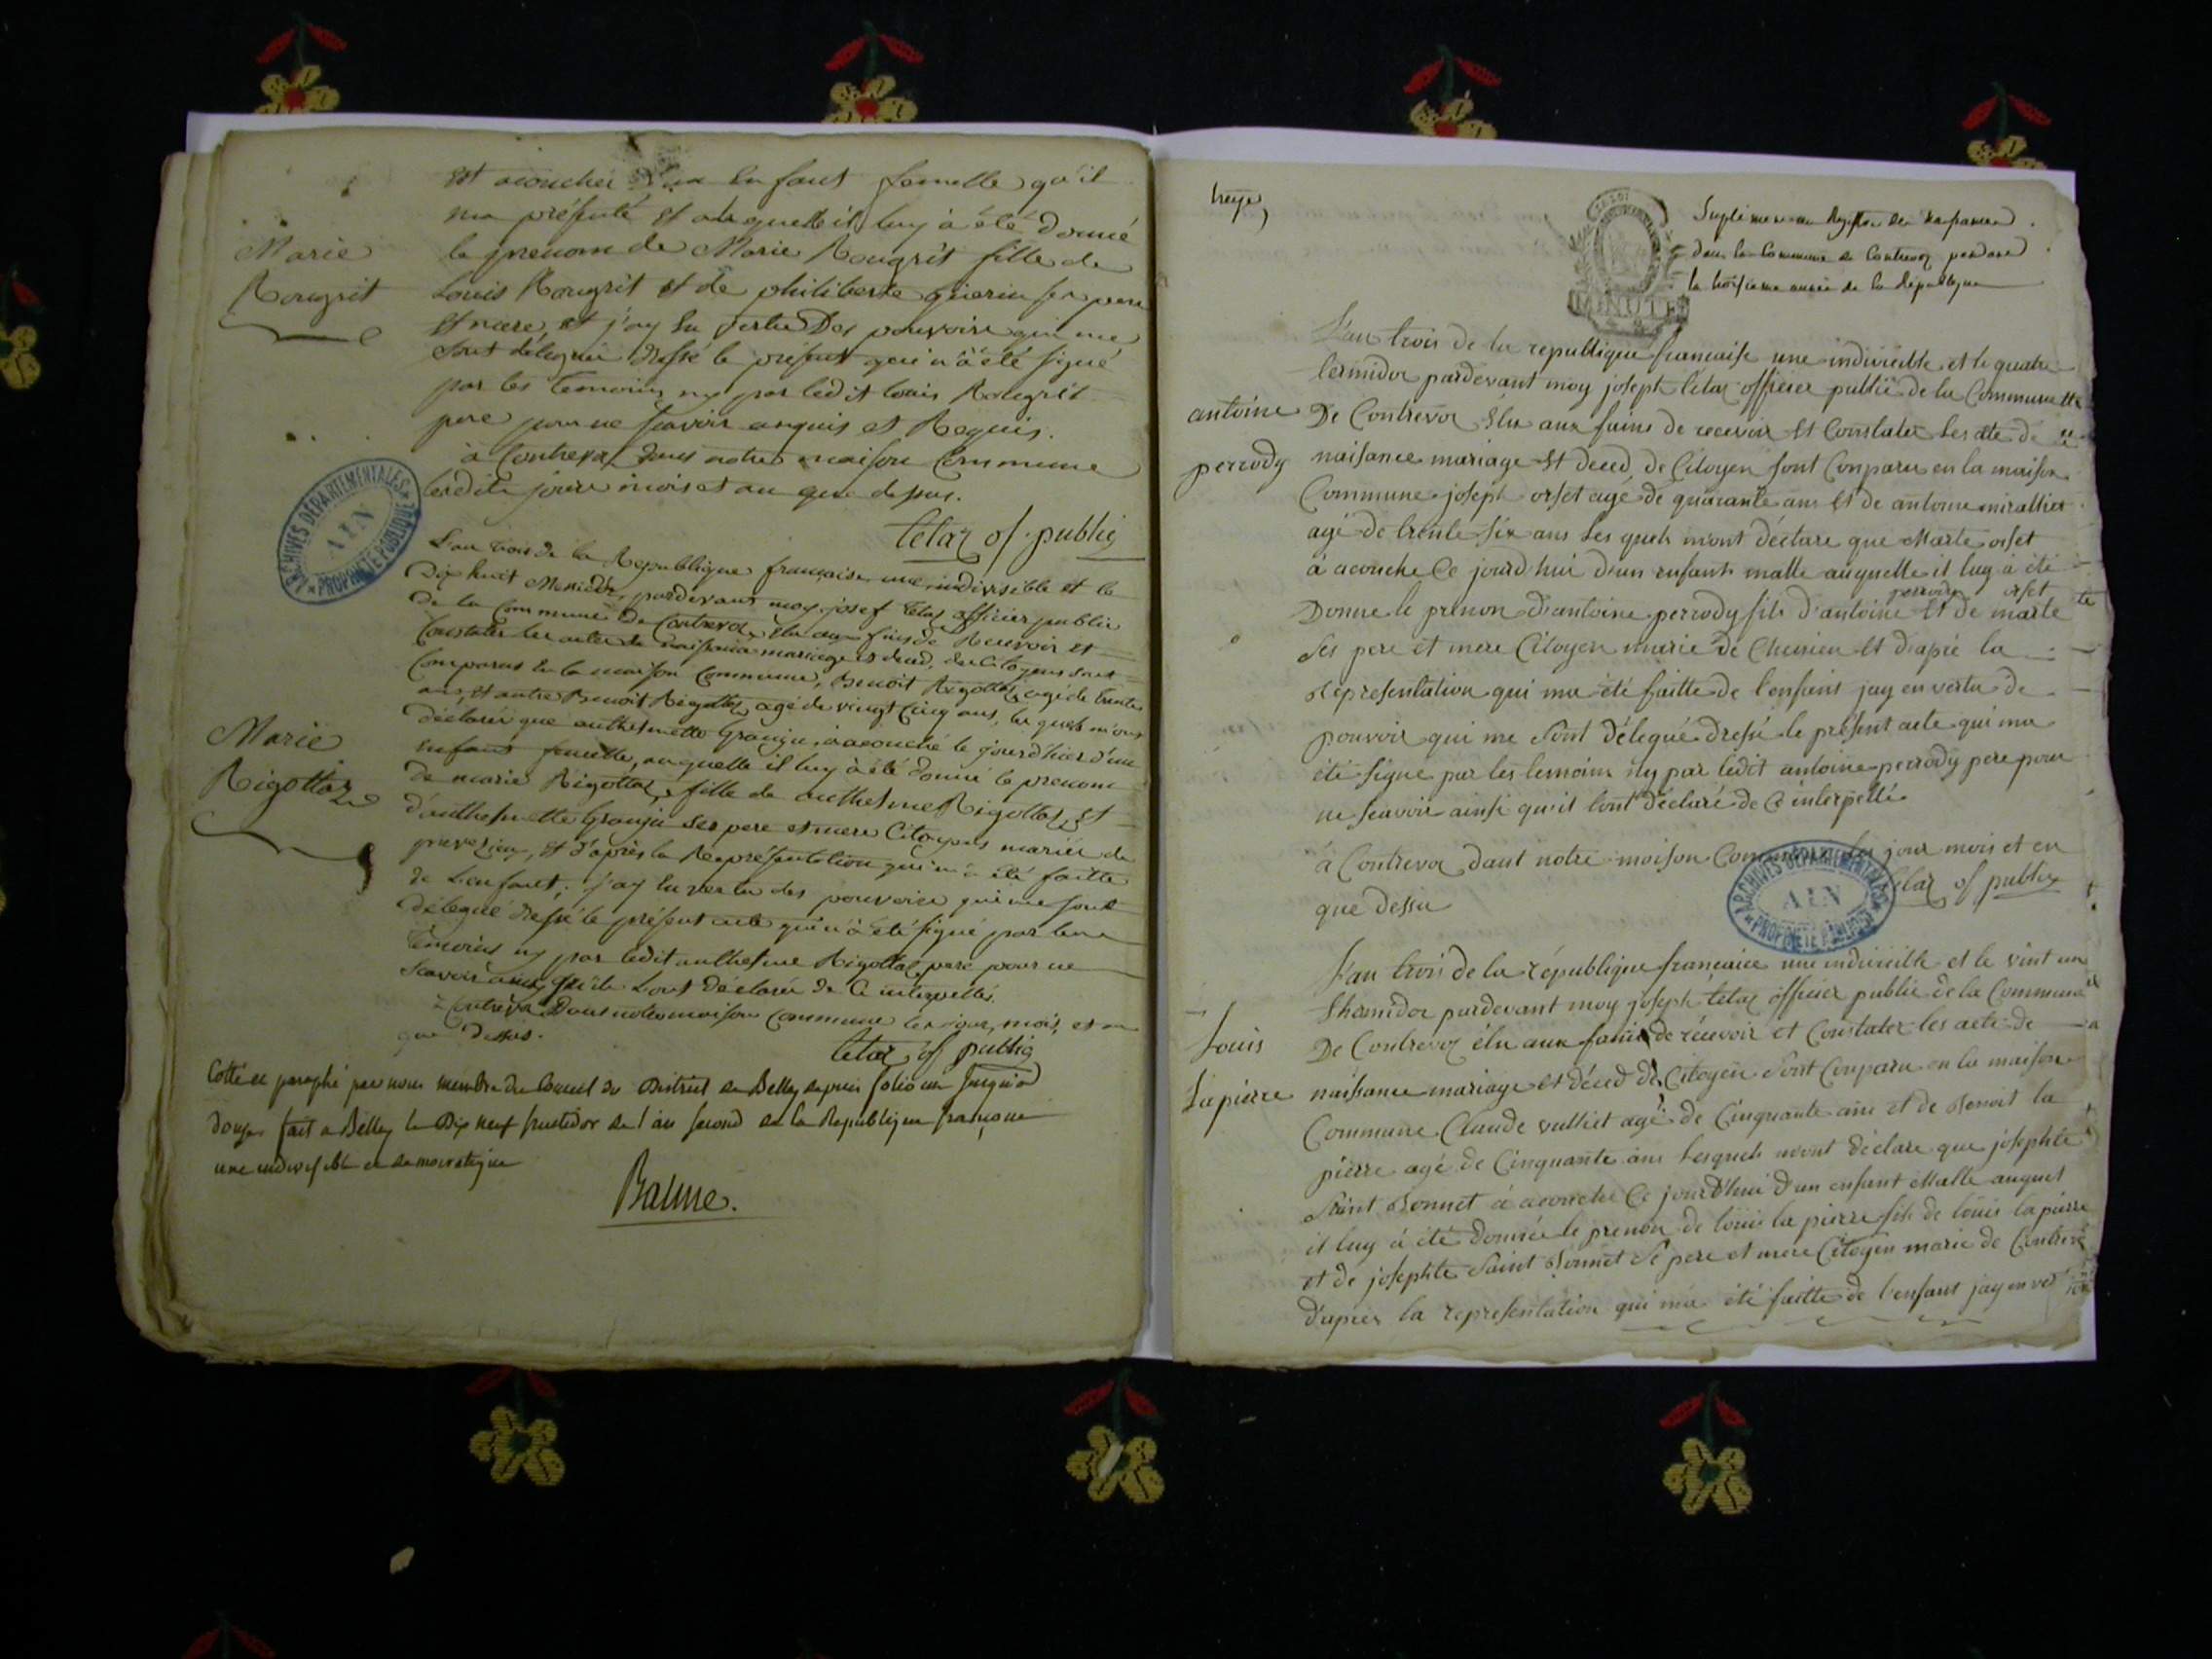 est acouchée d'un enfant femelle qu'il
ma présenté et auquelle il luy à été donné
Marie
Rougrit
le prenom de Marie Rougrit fille de
Louis Rougrit et de philiberte guerin ses pere
et mere, et j'ay en vertu des pouvoirs qui me
sont délegué dressé le présent qui n'à été signé
par les temoins ny par ledit Louis Rougrit
pere pour ne scavoir enquis et Requis.
à Contrevoz dans notre maison Commune
lesdits jour mois et an que dessus.
tetaz of. public
L'an trois de la Republique française une, indivisible et le
Dix huit Messidor, pardevant moy josef tetaz officier public
de la Commune de Contrevoz, élu aux fins de Recevoir et
Constater les actes de naissance mariage et deced, des Citoyens sont
Comparus en la maison Commune, Benoit Rigottaz agé de trente
ans, et autre Benoit Rigottaz agé de vingt cinq ans, les quels m'ont
déclaré que anthelmette Granju, à acouché le jourd'hier d'un
Marie
Rigottaz
enfant femelle, auquelle il luy à été donné le prenom
de marie Rigottaz, fille de anthelme Rigottaz, et
d'anthelmette Granju ses pere et mere Citoyens mariés de
prevezieu, et d'après la Représentation qui m'à été faitte
de L'enfant, j'ay en vertu des pouvoirs qui me sont
délegué dressé le présent acte qui n'à été signé par les
témoins ny par ledit anthelme Rigottaz pere pour ne
scavoir ainsy qu'ils L'ont déclaré de Ce interpellés.
à Contrevoz Dans notre maison Commune les jour, mois, et an
que dessus.
tetaz of public
Cotté et paraphé par nous membre du Conseil du District de Belley depuis folio un jusqu'à
douze fait à Belley le Dix neuf fructidor de l'an second de la Republique françoise
une indivisible et démocratique
Balme.
ARCHIVES DÉPARTEMENTALES
AIN
PROPRIÉTÉ PUBLIQUE
treize
MINUTE
Suplément au Registre des naissances
dans la Commune de Contrevoz pendant
la troisieme année de la Republique
L'an trois de la republique francaise une indivicible et le quatre
termidor pardevant moy joseph tétaz officier public de la Commune
antoine
perrody
De Contrevoz élu aux fains de recevoir et Constater les acte de
naisance mariage et deced de Citoyen sont Conparu en la maison
Commune joseph orset agé de quarante ans et de antoine miralliet
agé de trente six ans Les quels m'ont déclare que Marte orset
à acouche Ce jourd'hui d'un enfant malle auquelle il luy à été
perrody orset
Donne le prenon d'antoine perrody fils d'antoine et de marte
Ses pere et mere Citoyen marie de Cheinieu et d'apié la
représentation qui ma été faitte de l'enfant jay en vertu de
pouvoir qui me sont délegué dressé le présent acte qui ma
été signe par les temoins ny par ledit antoine perrody pere pour
ne scavoir ainsi qu'il lont déclaré de Ce interpellé
à Contrevoz dant notre maison Commune les jour mois et en
que dessu
tetaz of public
ARCHIVES DÉPARTEMENTALES
AIN
PROPRIÉTÉ PUBLIQUE
L'an trois de la république francaice une indivicible et le vint un
thermidor pardevant moy joseph tetaz officier public de la Commune
Louis
Lapierre
De Contrevoz élu aux fains de récevoir et Constater les acte de
naissance mariage et déced de Citoyen sont Conparu en la maison
Commune Claude valliet agé de Cinquante ans et de Benoit la
pierre agé de Cinquante ans Lesquels mont déclare que josephte
Saint Bonnet à acouche Ce jourd'hui d'un enfant Malle auquel
il luy à été donnée le prenon de louis la pierre fils de louis la pierre
et de josephte Saint Bonnet Se pere et mere Citoyen marie de Contrevoz
d'apres la representation qui ma été faitte de l'enfant jay en ver